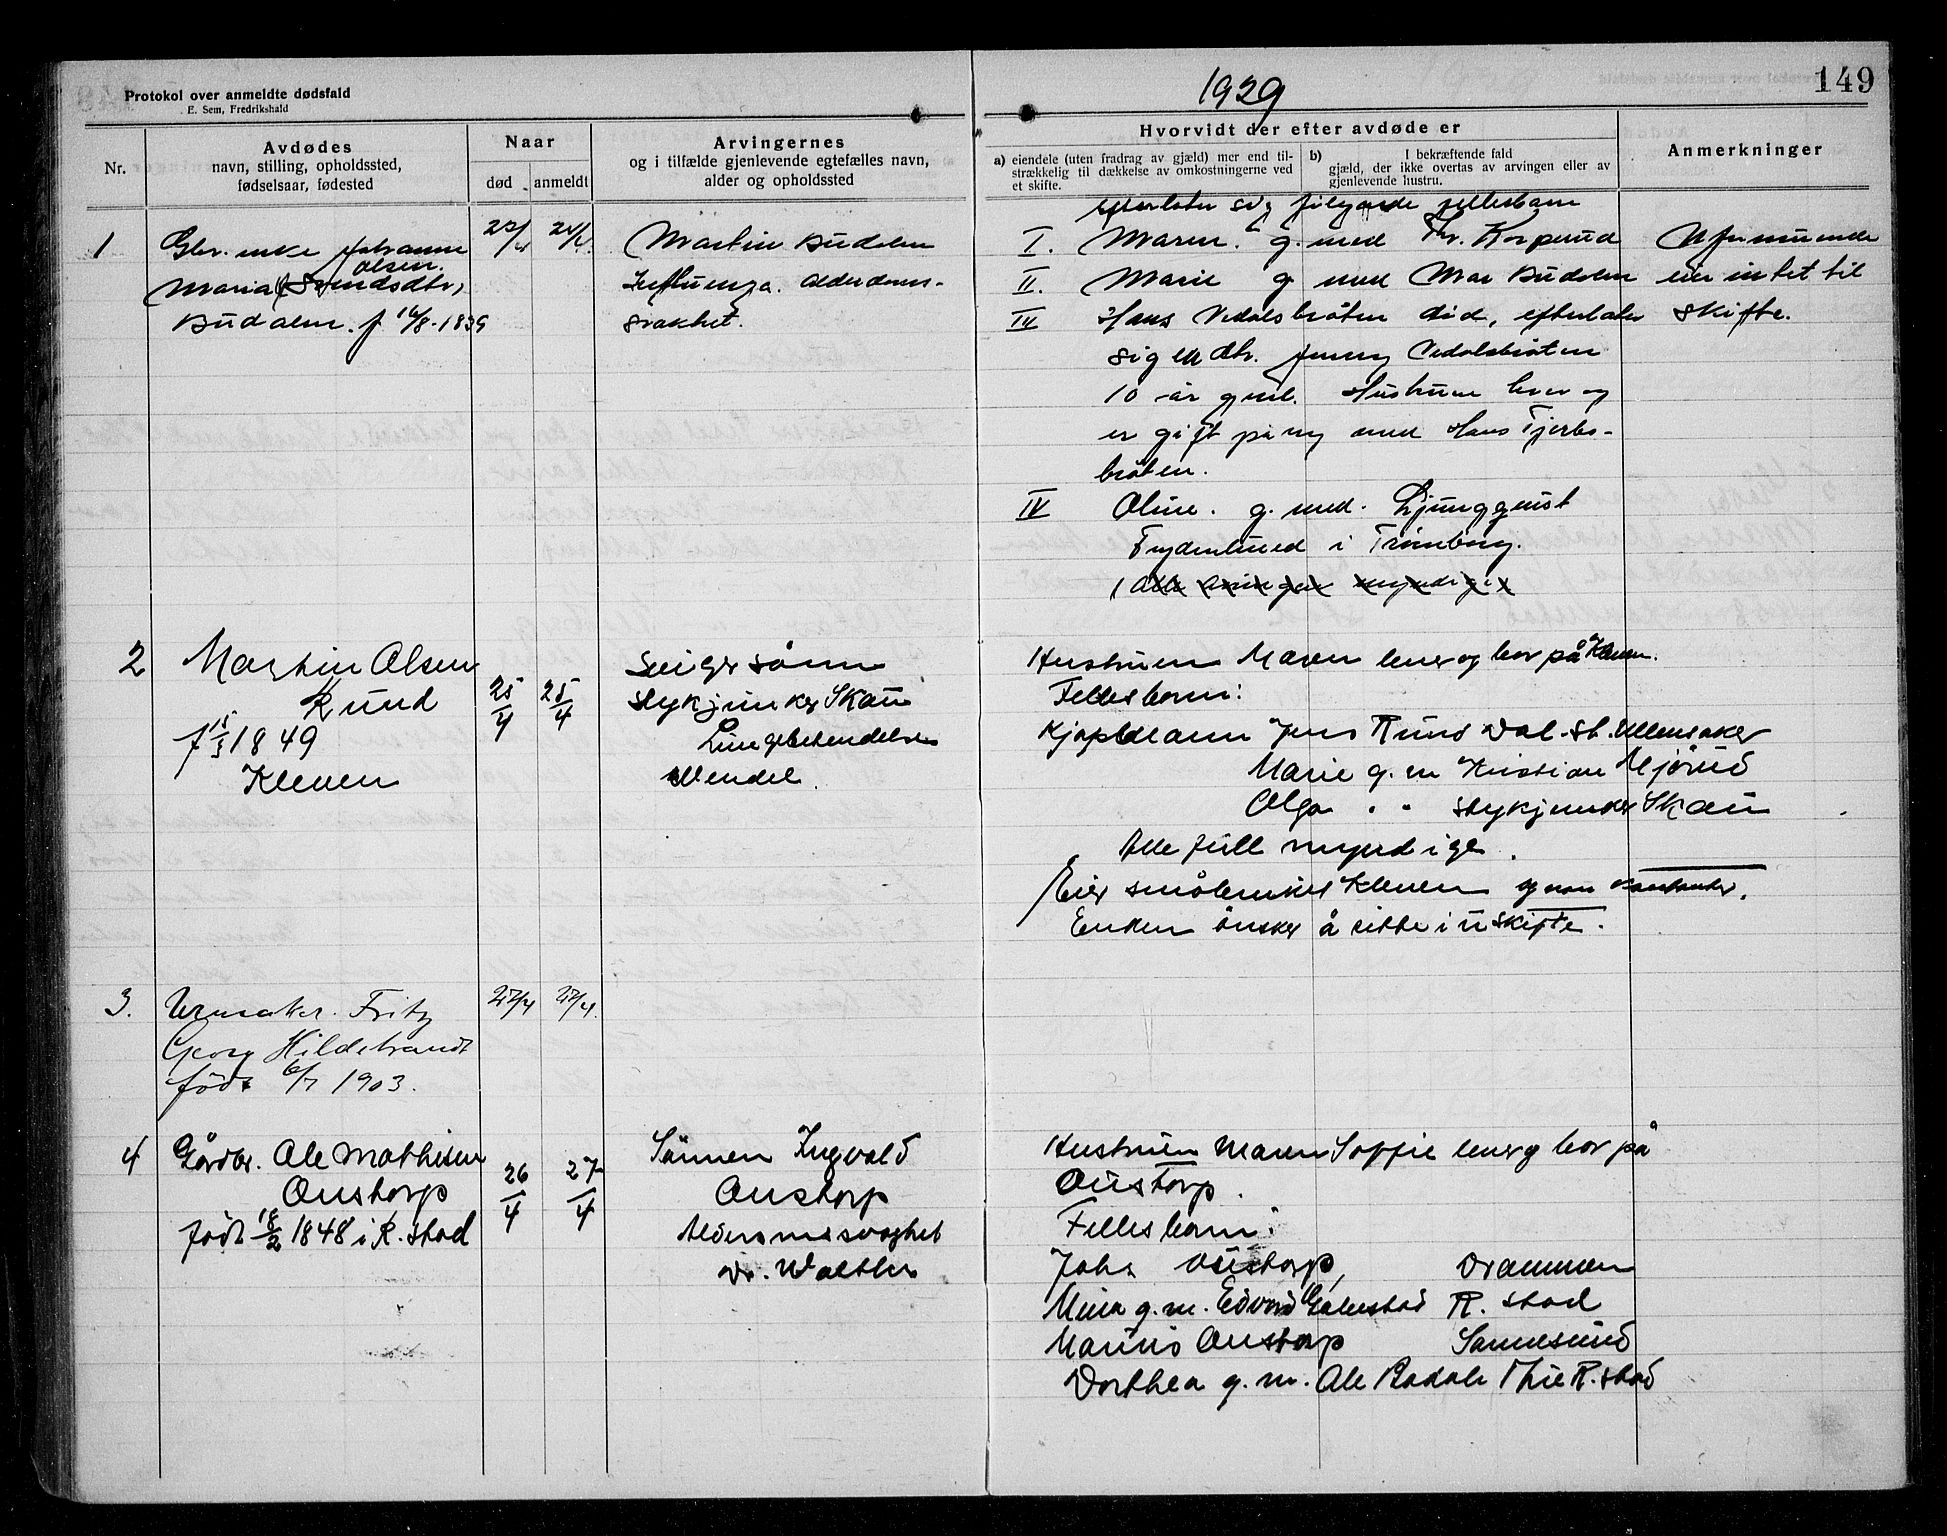 Protokol over anmeldte dødsfald
E. Sem, Fredrikshald
1929
149
Nr.
Avdødes
navn, stilling, opholdssted,
fødselsaar, fødested
Naar
død
anmeldt
Arvingernes
og i tilfælde gjenlevende egtefælles navn,
alder og opholdssted
Hvorvidt der efter avdøde er
a) eiendele (uten fradrag av gjæld) mer end til-
strækkelig til dækkelse av omkostningerne ved
et skifte.
b) I bekræftende fald
gjæld, der ikke overtas av arvingen eller av
gjenlevende hustru.
Anmerkninger
1
enke Johanne
Olsen
Maria
Budalen. f 16/8-1839
24/4
Martin Budalen
Influenza. Alderdoms-
svakhet.
efterlater sig følgende fellesbarn
I. Maren. g. med Korperud
II. Marie g med Mar Budalen
III Hans Vedalsbråten død, efterlater
sig en dtr. Jenny Vedalsbråten
10 år gml. Hustruen lever og
er gift påny med Hans Tjerbs-
bråten.
IV Oline. g. med. Ljungquist
Frydenlund i Trømborg.
Uformuende
eier intet til
skifte.
2
Martin Olsen
Rund
f 15/3 1849
Kleven
25/4
25/4
Svigersønn
Skau
Lungebetendelse
Wendel.
Hustruen Maren lever og bor på Kleven.
Fellesbarn:
Kjøpmann Jens Rund Dal. st. Ullensaker
Marie g. m Kristian Mjørud
Olga " " Skau
Alle full myndige.
Eier småbruket Kleven og noen kontanter.
Enken ønsker å sitte i uskifte.
3.
Urmaker. Fritz
Georg Hildebrandt
født 6/7 1903.
27/4
27/4.
4
Gårdbr. Ole Mathisen
Oustorp
født 18/2 1848 i R.stad
26/4
27/4
Sønnen Ingvald
Oustorp
Alderdomssvaghet
Dr. Walther
Hustruen Maren Soffie lever og bor på
Oustorp.
Fellesbarn:
Johs Oustorp, Drammen
Mina g. m. Edvard R. stad
Marius Oustorp Sannesund
Dorthea g. m. Ole R. stad